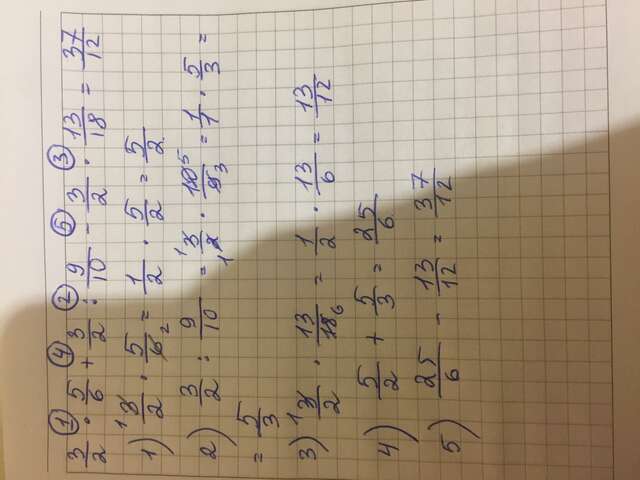 ① ④ ② ⑤ ③
3/2 · 5/6 + 3/2 : 9/10 - 3/2 · 13/18 = 37/12
1) 3/2 · 5/6 = 1/2 · 5/2 = 5/2
2) 3/2 : 9/10 = 3/2 · 10/9 = 1/1 · 5/3 =
= 5/3
3) 3/2 · 13/18 = 1/2 · 13/6 = 13/12
4) 5/2 + 5/3 = 25/6
5) 25/6 - 13/12 = 37/12